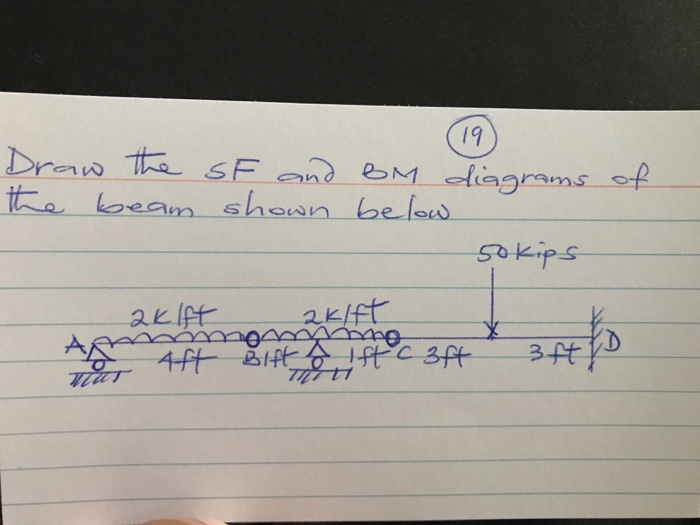 19
Draw the SF and BM diagrams of
the beam shown below
50 kips
2k/ft 2k/ft
A 4ft B 1ft 1ft C 3ft 3ft D